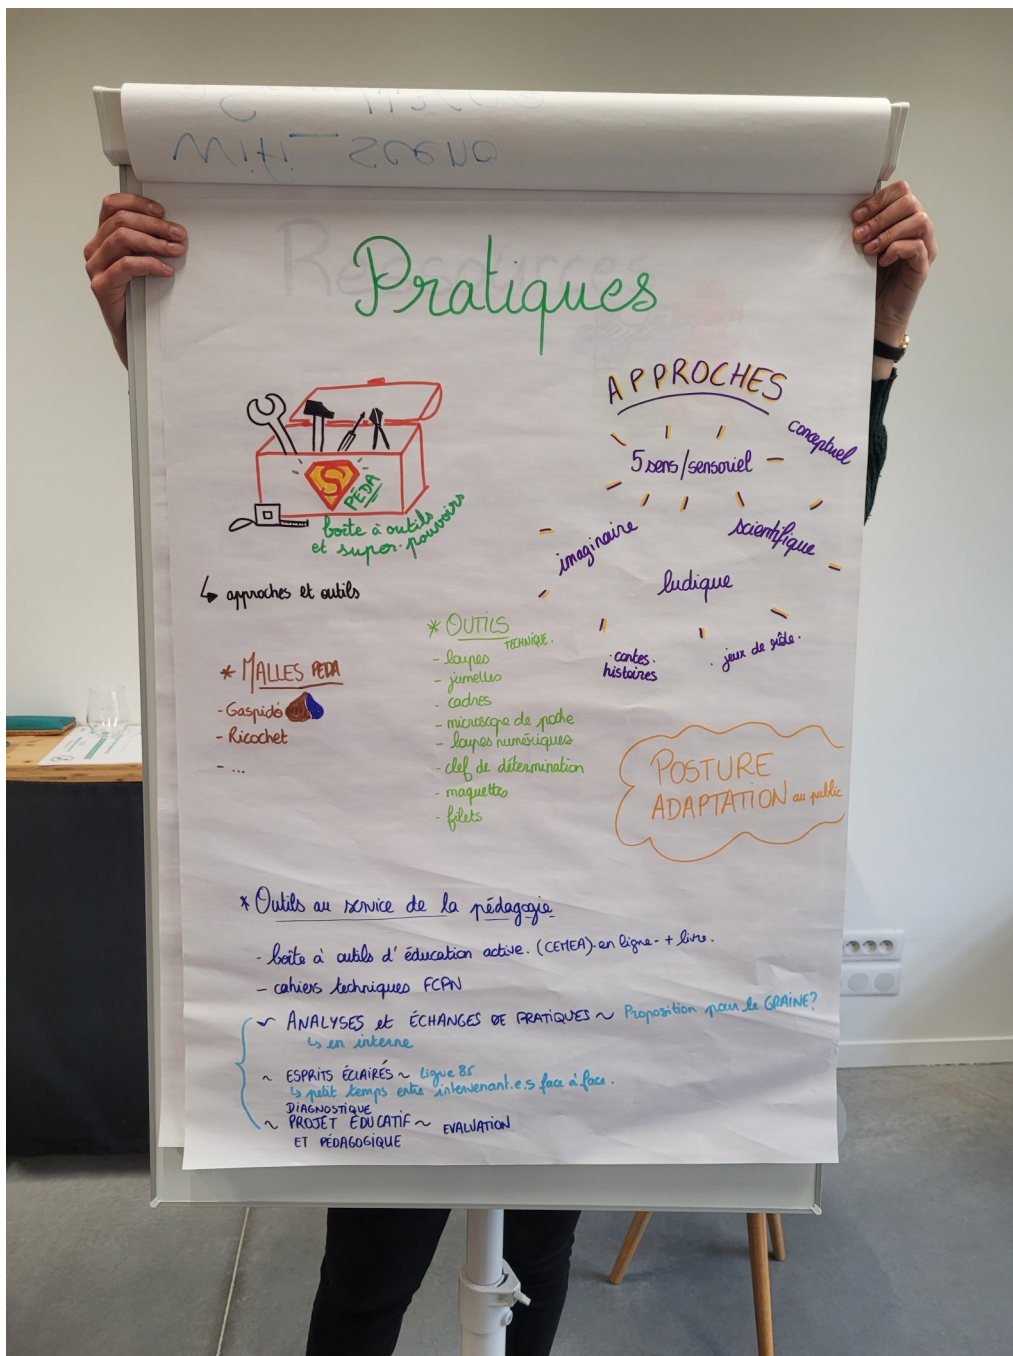 Wifi_Sceno
Ressources
Pratiques
S
PÉDA
boîte à outils
et super-pouvoirs
↳ approches et outils
APPROCHES
conceptuel
5 sens/sensoriel
imaginaire
scientifique
ludique
contes.
histoires
. jeux de rôle.
* MALLES PEDA
- Gaspido
- Ricochet
- ...
* OUTILS
TECHNIQUE.
- loupes
- jumelles
- cadres
- microscope de poche
- loupes numériques
- clef de détermination
- maquettes
- filets
POSTURE
ADAPTATION au public
* Outils au service de la pédagogie
- boîte à outils d'éducation active. (CEMEA)-en ligne- + livre.
- cahiers techniques FCPN
~ ANALYSES et ÉCHANGES DE PRATIQUES ~ Proposition pour le GRAINE?
↳ en interne
~ ESPRITS ÉCLAIRÉS ~ Ligue 85
↳ petit temps entre intervenant.e.s face à face.
DIAGNOSTIQUE
~ PROJET ÉDUCATIF ~ EVALUATION
ET PÉDAGOGIQUE